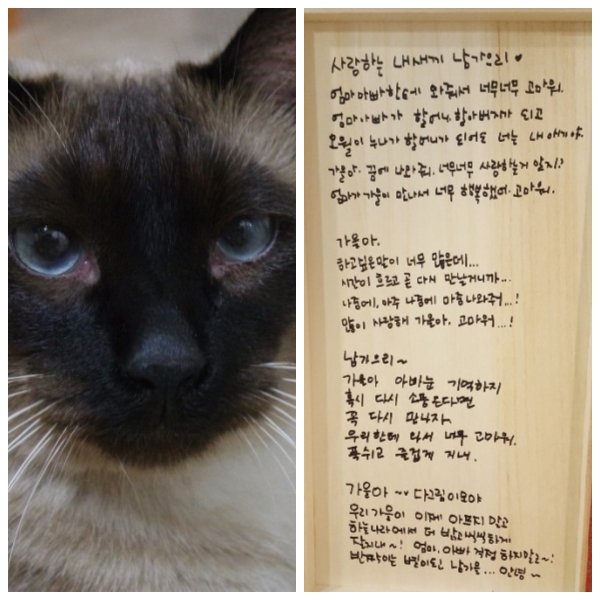 사랑하는 내새끼 남가으리♥
엄마아빠한테 와줘서 너무너무 고마워.
엄마아빠가 할머니, 할아버지가 되고
오월이 누나가 할머니가 되어도 너는 내 아가야.
가을아. 꿈에 나와줘. 너무너무 사랑하는거 알지?
엄마가 가을이 만나서 너무 행복했어. 고마워.
가을아.
하고싶은말이 너무 많은데...
시간이 흐르고 곧 다시 만날거니까...
나중에, 아주 나중에 마중나와줘...!
많이 사랑해 가을아. 고마워...!
남가으리~
가을아 아빠는 기억하지
혹시 다시 소풍온다면
꼭 다시 만나자
우리한테 와서 너무 고마워.
푹쉬고 즐겁게 지내.
가을아 ~~ 다그림이모야
우리가을이 이제 아프지 말고
하늘나라에서 더 밝고 씩씩하게
잘지내~! 엄마, 아빠 걱정 하지말고~!
반짝이는 별이되고 남가을... 안녕~